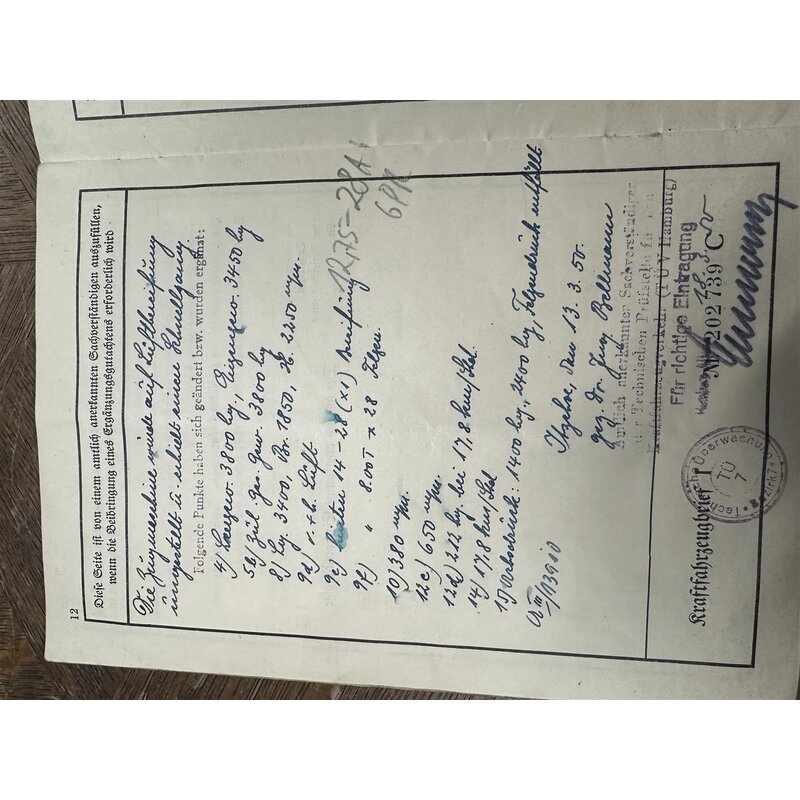 12
Diese Seite ist von einem amtlich anerkannten Sachverständigen auszufüllen,
wenn die Beibringung eines Ergänzungsgutachtens erforderlich wird
Die Zugmaschine wurde auf Luftbereifung
umgestellt u. erhielt einen Schnellgang
Folgende Punkte haben sich geändert bzw. wurden ergänzt:
4) 3800 kg, Eigengew. 3450 kg
5a) Zul. ges. Gew. 3800 kg
8) Lg. 3400, Br. 1850, 2200 m/m.
9d) v. + h. Luft
9e) hinten 14-28 (x1) Bereifung 12,75-28 A
6PR
9f) " 8.00T x 28 Felgen.
10) 380 m/m.
12c) 650 m/m.
12d) 212 kg bei 17,8 km/Std.
14) 17.8 km/Std
15) Achsdrücke: 1400 kg, 2400 kg, Felgendruck entfällt
Itzehoe, den 13. 3. 50.
gez. Dr. Ing. Bollmann
Amtlich anerkannter Sachverständiger
der Technischen Prüfstelle für den
Kraftfahrzeugverkehr (TÜV Hamburg)
Für richtige Eintragung
Kraftfahrzeugbrief Nr. 202739 C
Techn. Überwachung
TÜ
7